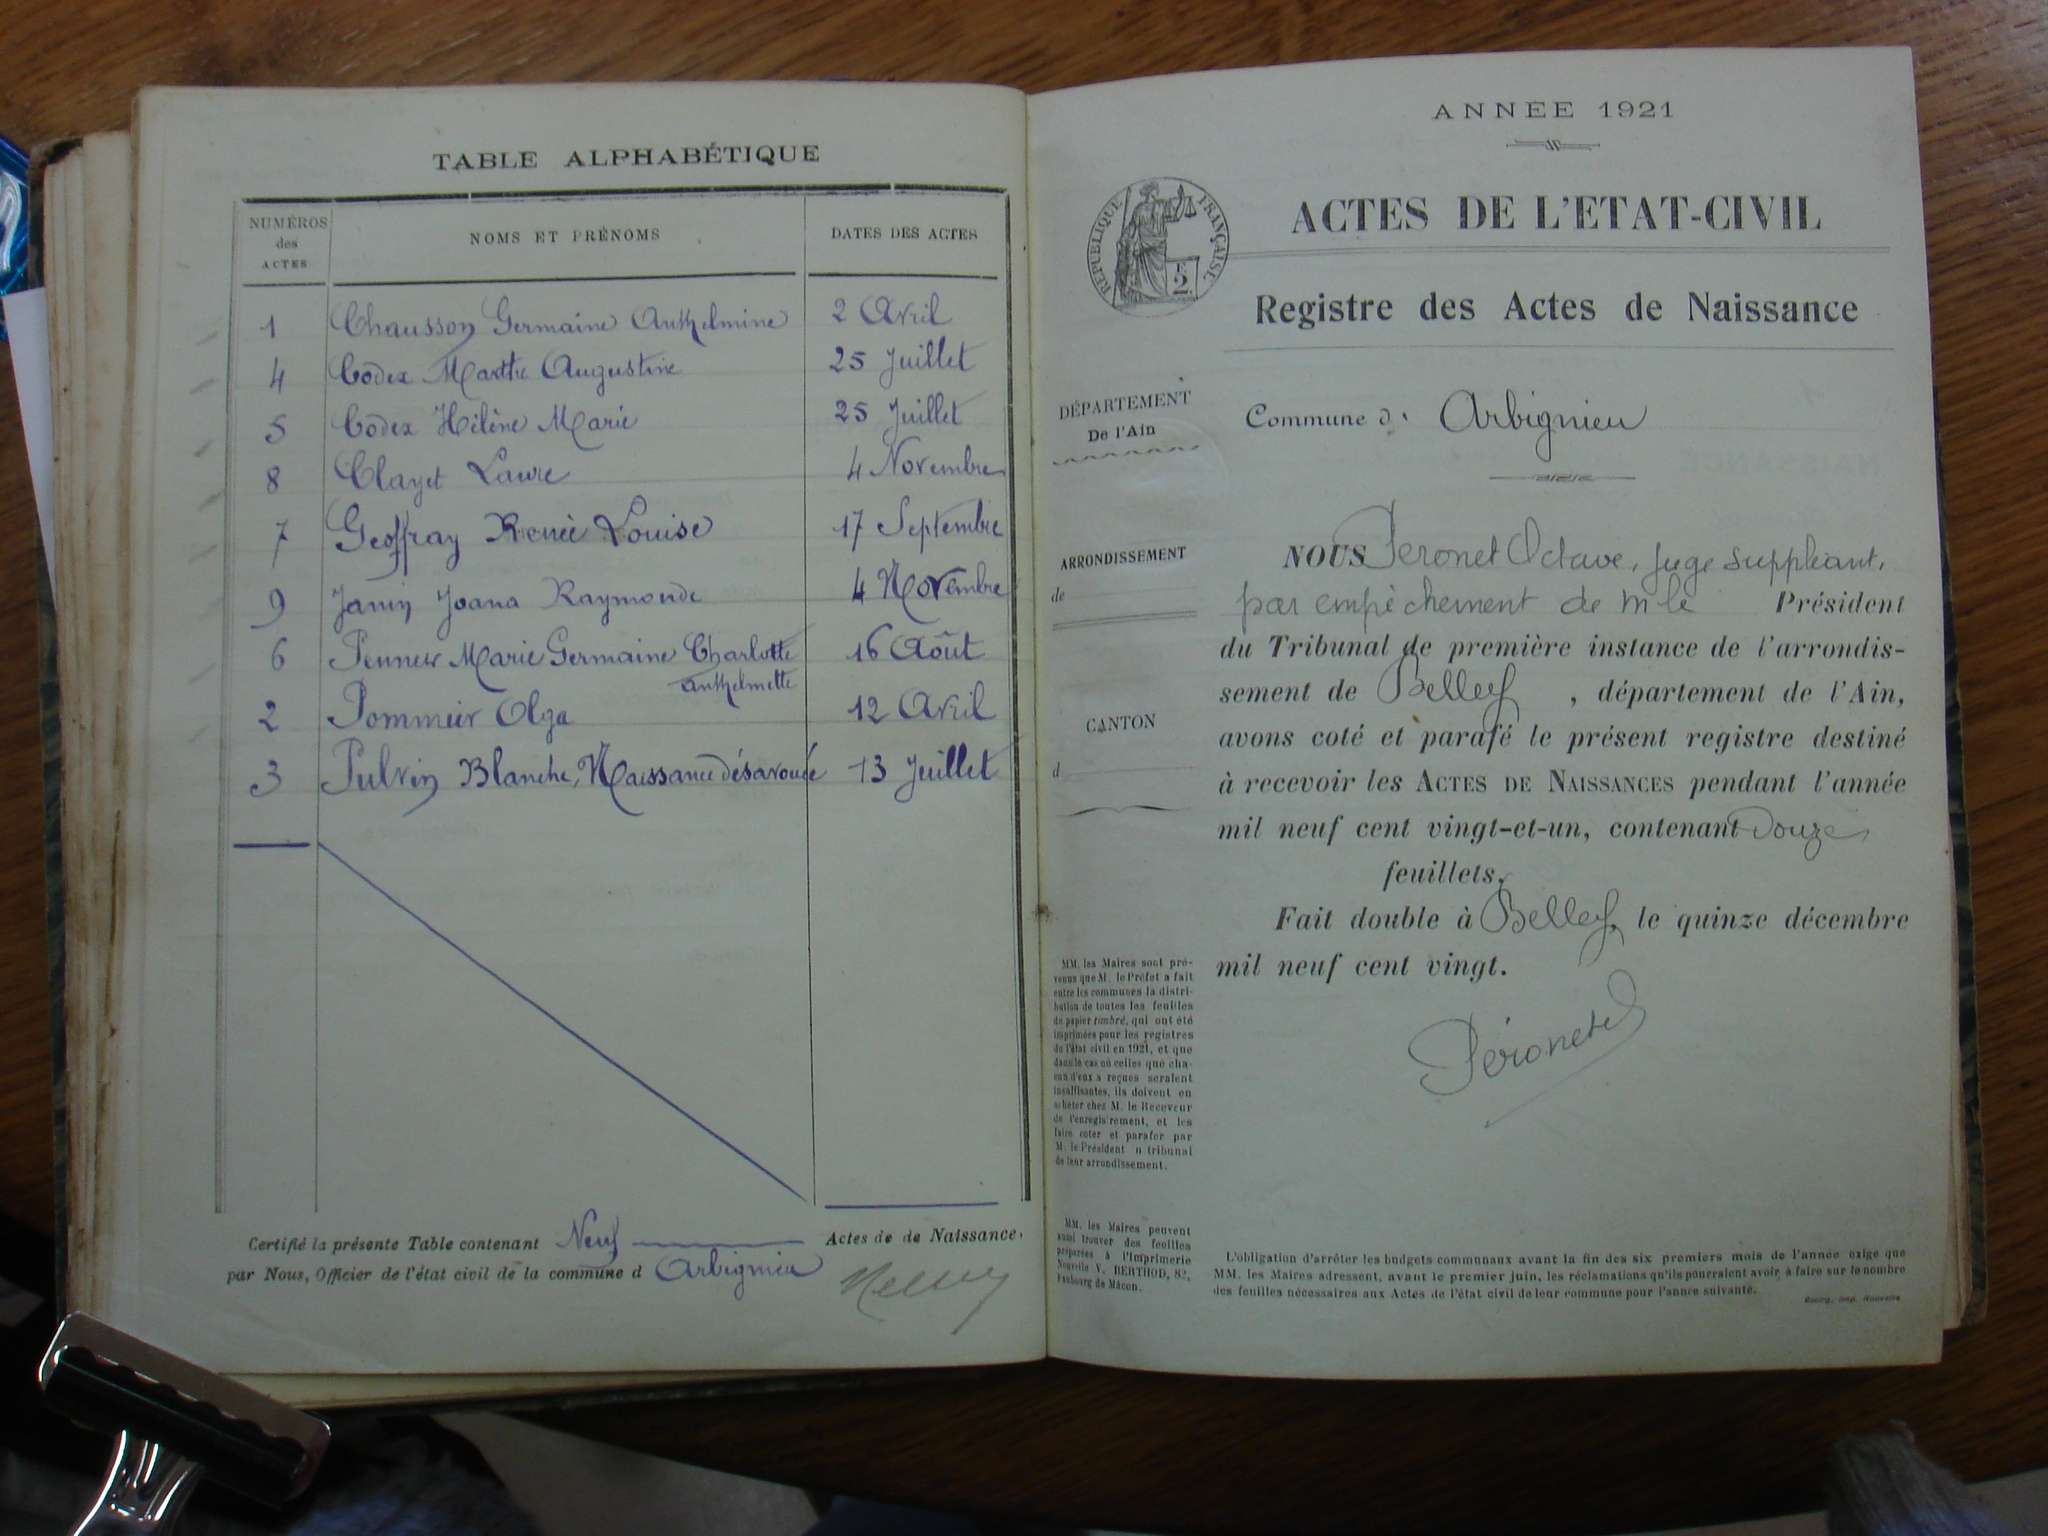 TABLE ALPHABÉTIQUE
NUMÉROS des ACTES
NOMS ET PRÉNOMS
DATES DES ACTES
1 Chausson Germaine Anthelmine 2 Avril
4 Codex Marthe Augustine 25 Juillet
5 Codex Hélène Marie 25 Juillet
8 Clayet Laure 4 Novembre
7 Geoffray Renée Louise 17 Septembre
9 Janin Joana Raymonde 4 Novembre
6 Penner Marie Germaine Charlotte 16 Août
Anthelmette
2 Pommier Olga 12 Avril
3 Pulvin Blanche, Naissance désavouée 13 Juillet
Certifié la présente Table contenant Neuf Actes de de Naissance,
par Nous, Officier de l'état civil de la commune d Arbignieu
ANNÉE 1921
RÉPUBLIQUE FRANÇAISE
2 F
ACTES DE L'ETAT-CIVIL
Registre des Actes de Naissance
DÉPARTEMENT
De l'Ain
ARRONDISSEMENT
de
CANTON
d
MM. les Maires sont pré-
venus que M. le Préfet a fait
entre les communes la distri-
bution de toutes les feuilles
de papier timbré, qui ont été
imprimées pour les registres
de l'état civil en 1921, et que
dans le cas où celles que cha-
cun d'eux a reçues seraient
insuffisantes, ils doivent en
acheter chez M. le Receveur
de l'enregistrement, et les
faire coter et parafer par
M. le Président n tribunal
de leur arrondissement.
MM. les Maires peuvent
aussi trouver des feuilles
préparées à l'Imprimerie
Nouvelle V. BERTHOD, 82,
Faubourg de Mâcon.
Commune d' Arbignieu
NOUS Peronet Octave, juge suppléant,
par empêchement de M le Président
du Tribunal de première instance de l'arrondis-
sement de Belley, département de l'Ain,
avons coté et parafé le présent registre destiné
à recevoir les ACTES DE NAISSANCES pendant l'année
mil neuf cent vingt-et-un, contenant Douze
feuillets.
Fait double à Belley, le quinze décembre
mil neuf cent vingt.
Péronet
L'obligation d'arrêter les budgets communaux avant la fin des six premiers mois de l'année exige que
MM. les Maires adressent, avant le premier juin, les réclamations qu'ils pourraient avoir à faire sur le nombre
des feuilles nécessaires aux Actes de l'état civil de leur commune pour l'année suivante.
Bourg, imp. Nouvelle